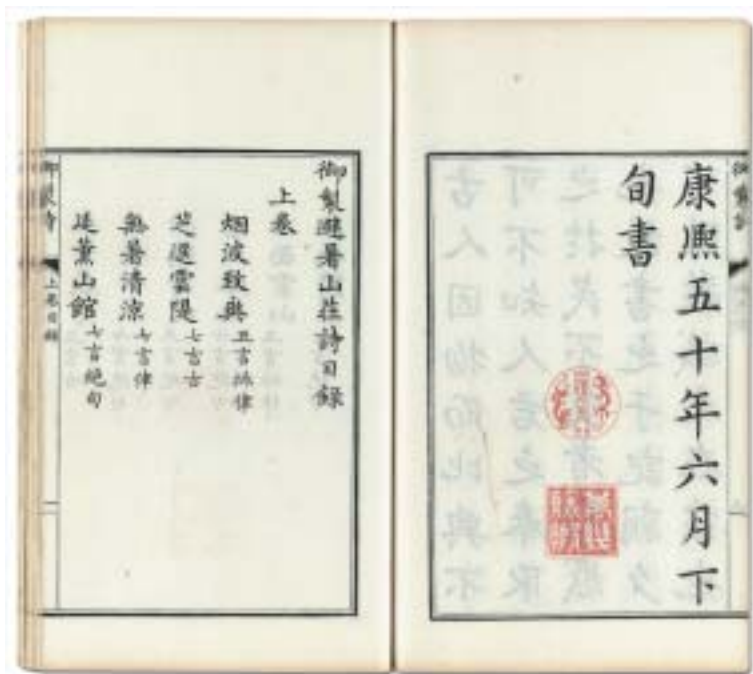 康熙五十年六月下
旬書
御製避暑山莊詩目錄
上卷
烟波致爽 五言排律
芝逕雲隄 七言古
無暑清涼 七言律
延薰山館 七言絕句
御製詩
上卷目錄